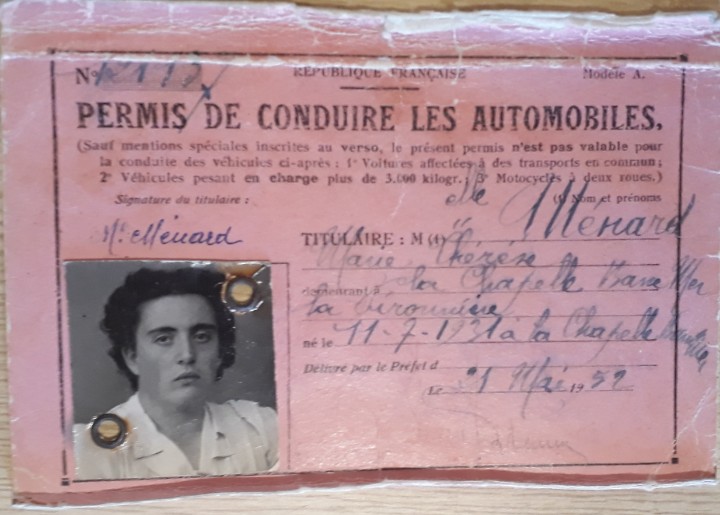 N° 12113
RÉPUBLIQUE FRANÇAISE
Modèle A.
PERMIS DE CONDUIRE LES AUTOMOBILES,
(Sauf mentions spéciales inscrites au verso, le présent permis n'est pas valable pour
la conduite des véhicules ci-après : 1° Voitures affectées à des transports en commun ;
2° Véhicules pesant en charge plus de 3.000 kilogr. ; 3° Motocycles à deux roues.)
Signature du titulaire :
(1) Nom et prénoms
M. Ménard
TITULAIRE : M (1) elle Ménard
Marie Thérèse
demeurant à la Chapelle Basse Mer
la
né le 11-7-1931 à la Chapelle Basse Mer
Délivré par le Préfet d
Le 21 Mai 1952